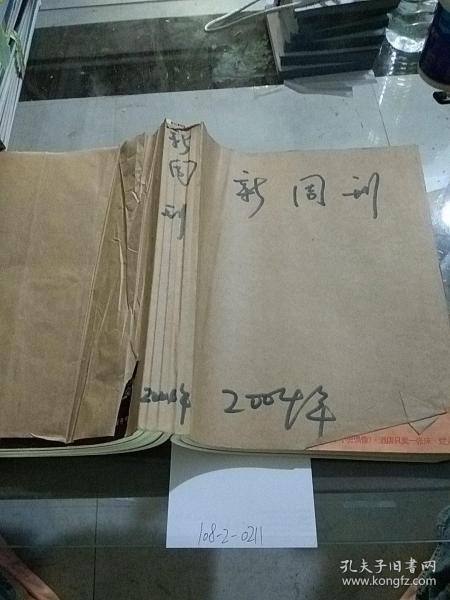 新周刊
2004年
新周刊
2004年
酒店只卖一张床
108-2-0211
孔夫子旧书网
www.kongfz.com